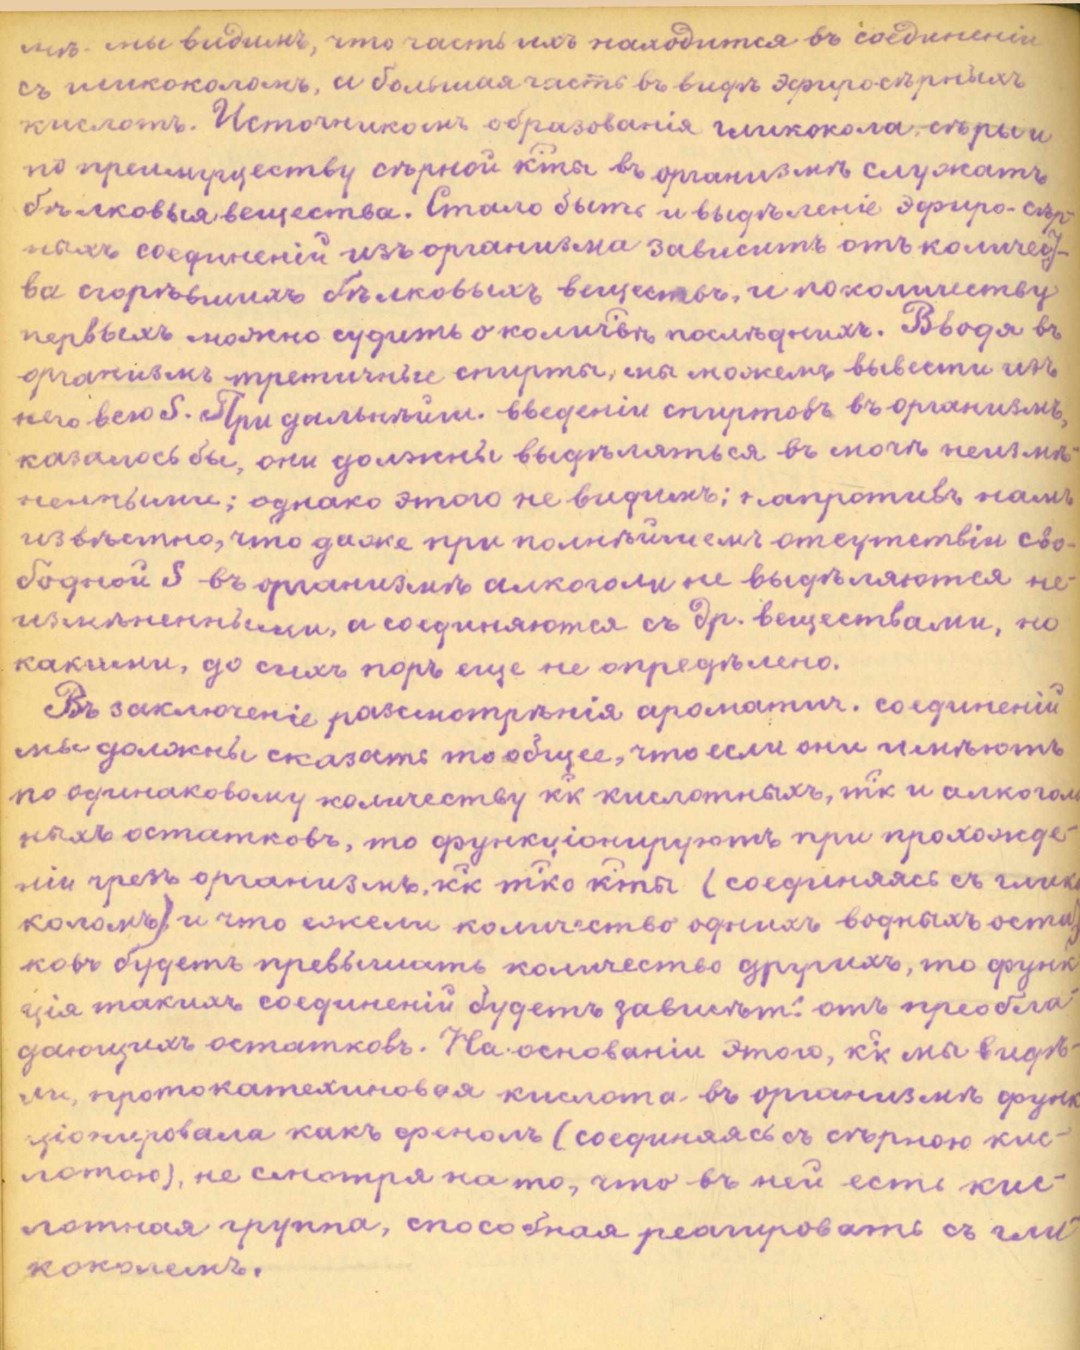 мѣ. мы видимъ, что часть ихъ находится въ соединеніи
съ гликоколомъ, а большая часть въ видѣ эфиросѣрныхъ
кислотъ. Источникомъ образованія гликокола, сѣры и
по преимуществу сѣрной к̃ты въ организмѣ служатъ
бѣлковыя вещества. Стало быть и выдѣленіе эфиро-сѣр-
ныхъ соединеній изъ организма зависитъ отъ количест-
ва сгорѣвшихъ бѣлковыхъ веществъ, и по количеству
первыхъ можно судить о колич̃вѣ послѣднихъ. Вводя въ
организмъ третичные спирты, мы можемъ вывести изъ
него всю S. При дальнѣйш. введеніи спиртовъ въ организмъ,
казалось бы, они должны выдѣляться въ мочѣ неизмѣ-
ненными; однако этого не видимъ; напротивъ намъ
извѣстно, что даже при полнѣйшемъ отсутствіи сво-
бодной S въ организмѣ алкоголи не выдѣляются не-
измѣненными, а соединяются съ др. веществами, но
какими, до сихъ поръ еще не опредѣлено.
Въ заключеніе разсмотрѣнія ароматич. соединеній
мы должны сказать то общее, что если они имѣютъ
по одинаковому количеству к̃к кислотныхъ, т̃к и алкоголь
ныхъ остатковъ, то функціонируютъ при прохожде-
ніи чрезъ организмъ, к̃к т̃ко к̃ты (соединяясь съ глико
коломъ) и что ежели количество однихъ водныхъ остат
ковъ будетъ превышать количество другихъ, то функ
ція такихъ соединеній будетъ зависѣть отъ преобла-
дающихъ остатковъ. На основаніи этого, к̃к мы видѣ-
ли, протокатехиновая кислота въ организмѣ функ
ціонировала какъ фенолъ (соединяясь съ сѣрною кис-
лотою), не смотря на то, что въ ней есть кис-
лотная группа, способная реагировать съ гли-
коколемъ.